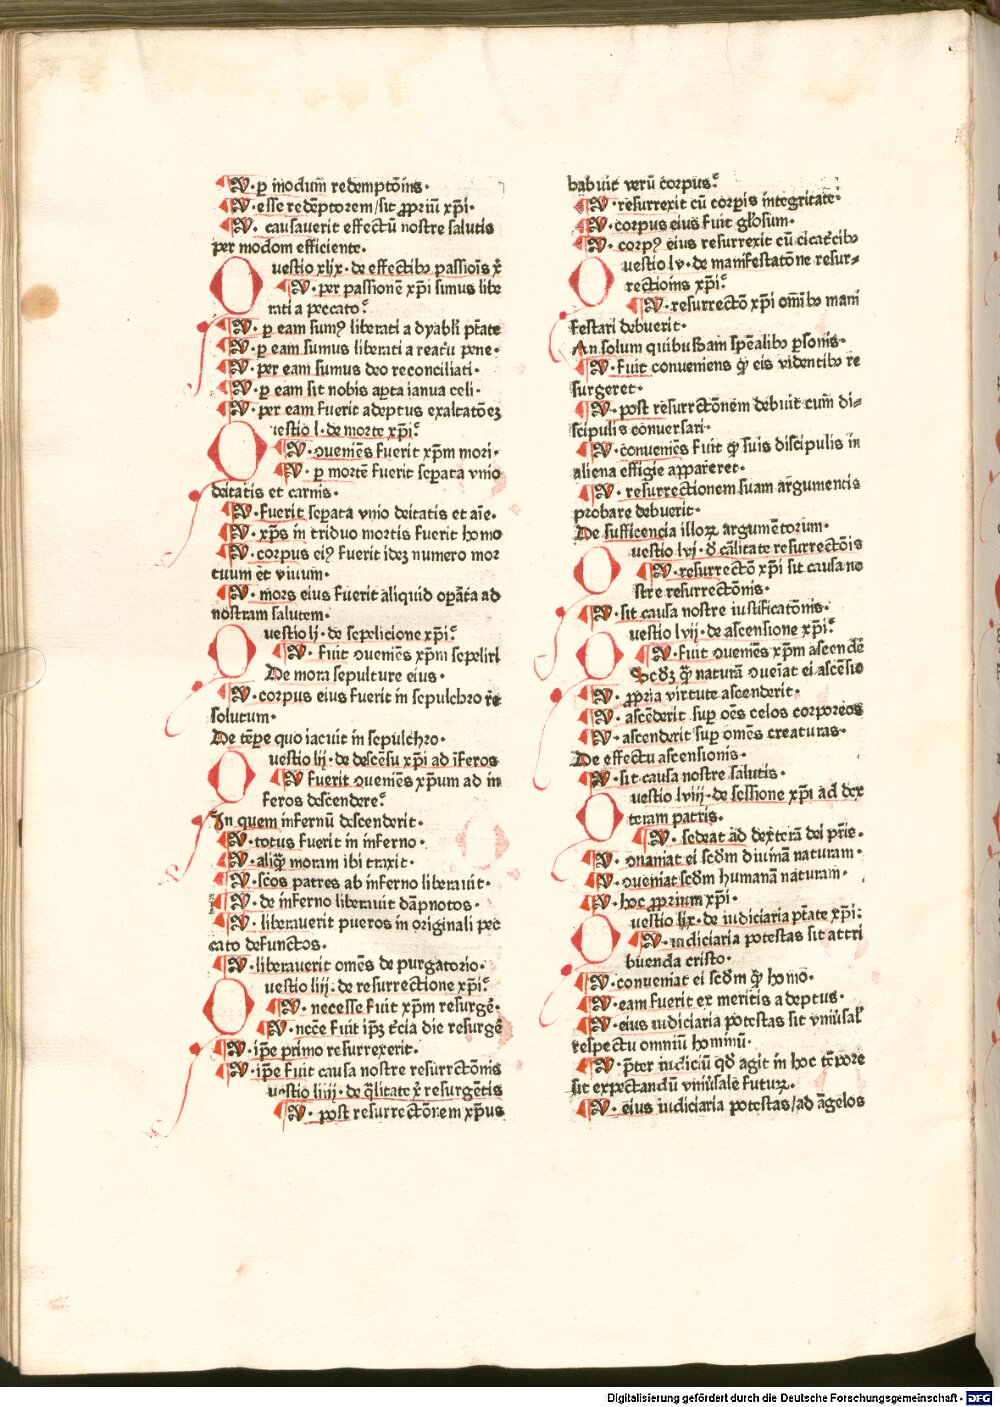 V· ꝑ modum̄ redemptōnis·
V· esse redēptorem/sit ꝓpriū xp̄i·
V· causauerit effectū nostre salutis
per modom efficiente·
Questio xlix· de effectibꝰ passiōis xp̄i
V· per passionē xp̄i simus libe
rati a peccato?
V· ꝑ eam sumꝰ liberati a dyabli p̄tate
V· ꝑ eam sumus liberati a reatu pene·
V· per eam sumus deo reconciliati·
V· ꝑ eam sit nobis aꝑta ianua celi·
V· per eam fuerit adeptus exaltatōeꝫ
Questio l· de morte xp̄i?
V· ꝯueniēs fuerit xp̄m mori·
V· ꝑ mortē fuerit seꝑata vnio
deitatis et carnis·
V· fuerit seꝑata vnio deitatis et aīe·
V· xp̄s in triduo mortis fuerit homo
V· corpus eiꝰ fuerit ideꝫ numero mor
tuum et viuum·
V· mors eius fuerit aliquid oꝑata ad
nostram salutem·
Questio lj· de sepelicione xp̄i?
V· fuit ꝯueniēs xp̄m sepeliri
De mora sepulture eius·
V· corpus eius fuerit in sepulchro re
solutum·
De tēꝑe quo iacuit in sepulchro·
Questio lij· de descēsu xp̄i ad īferos
V fuerit ꝯueniēs xp̄um ad in
feros descendere?
In quem infernū descenderit·
V· totus fuerit in inferno·
V· aliqͣ moram ibi traxit·
V· scōs patres ab inferno liberauit·
V· de inferno liberauit dāpnotos·
V· liberauerit pueros in originali pec
cato defunctos·
V· liberauerit omēs de purgatorio·
Questio liij· de resurrectione xp̄i?
V· necesse fuit xp̄m resurgē·
V· nccē fuit ip̄ꝫ t̄cia die resurgē
V· ip̄e primo resurrexerit·
V· ip̄e fuit causa nostre resurrctōnis
uestio liiij· de q̄litate xp̄i resurgētis
V· post resurrectōnem xp̄us
habuit verū corpus?
V· resurrexit cū corꝑis integritate·
V· corpus eius fuit gl̄osum·
V· corpꝰ eius resurrexit cū cicat̄cibꝰ
Questio lv· de manifestatōne resur-
rectioīns xp̄i?
V· resurrectō xp̄i oīmbꝰ mani
festari debuerit·
An solum quibusdam sp̄ealibꝰ ꝑsonis·
V· fuit conueniens qͥ eis videntibꝰ re
surgeret·
V· post resurrctōnem debuit cum di-
scipulis conuersari·
V· conueniēs fuit qͥ suis discipulis in
aliena effigie appareret·
V· resurrectionem suam argumentis
probare debuerit·
De sufficencia illoꝝ argumētorum·
Questio lvj· d̄ cāłitate resurrectōis
V· resurrectō xp̄i sit causa no
stre resurrectōnis·
V· sit causa nostre iustificatōnis·
Questio lvij· de ascensione xp̄i?
V· fuit ꝯueniēs xp̄m ascendē
Scd̄ꝫ qͣ naturā ꝯueīat ei ascēsio
V· ꝓpria virtute ascenderit·
V· ascēderit suꝑ oēs celos corporeos
V· ascenderit suꝑ omēs creaturas·
De effectu ascensionis·
V· sit causa nostre salutis·
Questio lviij· de sessione xp̄i ad dex
teram patris·
V· sedeat ad dexterā dei pr̄is·
V· ꝯuaniat ei scd̄m diuinā naturam·
V· ꝯueniat scd̄m humanā naturam·
V· hoc ꝓprium xp̄i·
Questio lix· de iudiciaria p̄tate xp̄i?
V· iudiciaria potestas sit attri
buenda cristo·
V· conueniat ei scd̄m qͥ homō·
V· eam fuerit ex meritis adeptus·
V· eius iudiciaria potestas sit vniūsał
respectu omniū hominū·
V· p̄ter iudiciū qd̄ agit in hoc tēpore
sit expectandū vniūsale futuꝝ·
V· eius iudiciaria potestas/ad āgelos
Digitalisierung gefördert durch die Deutsche Forschungsgemeinschaft - DFG